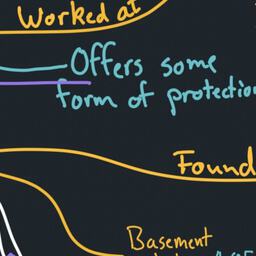 Worked at
Offers some
form of protection
Found
Basement